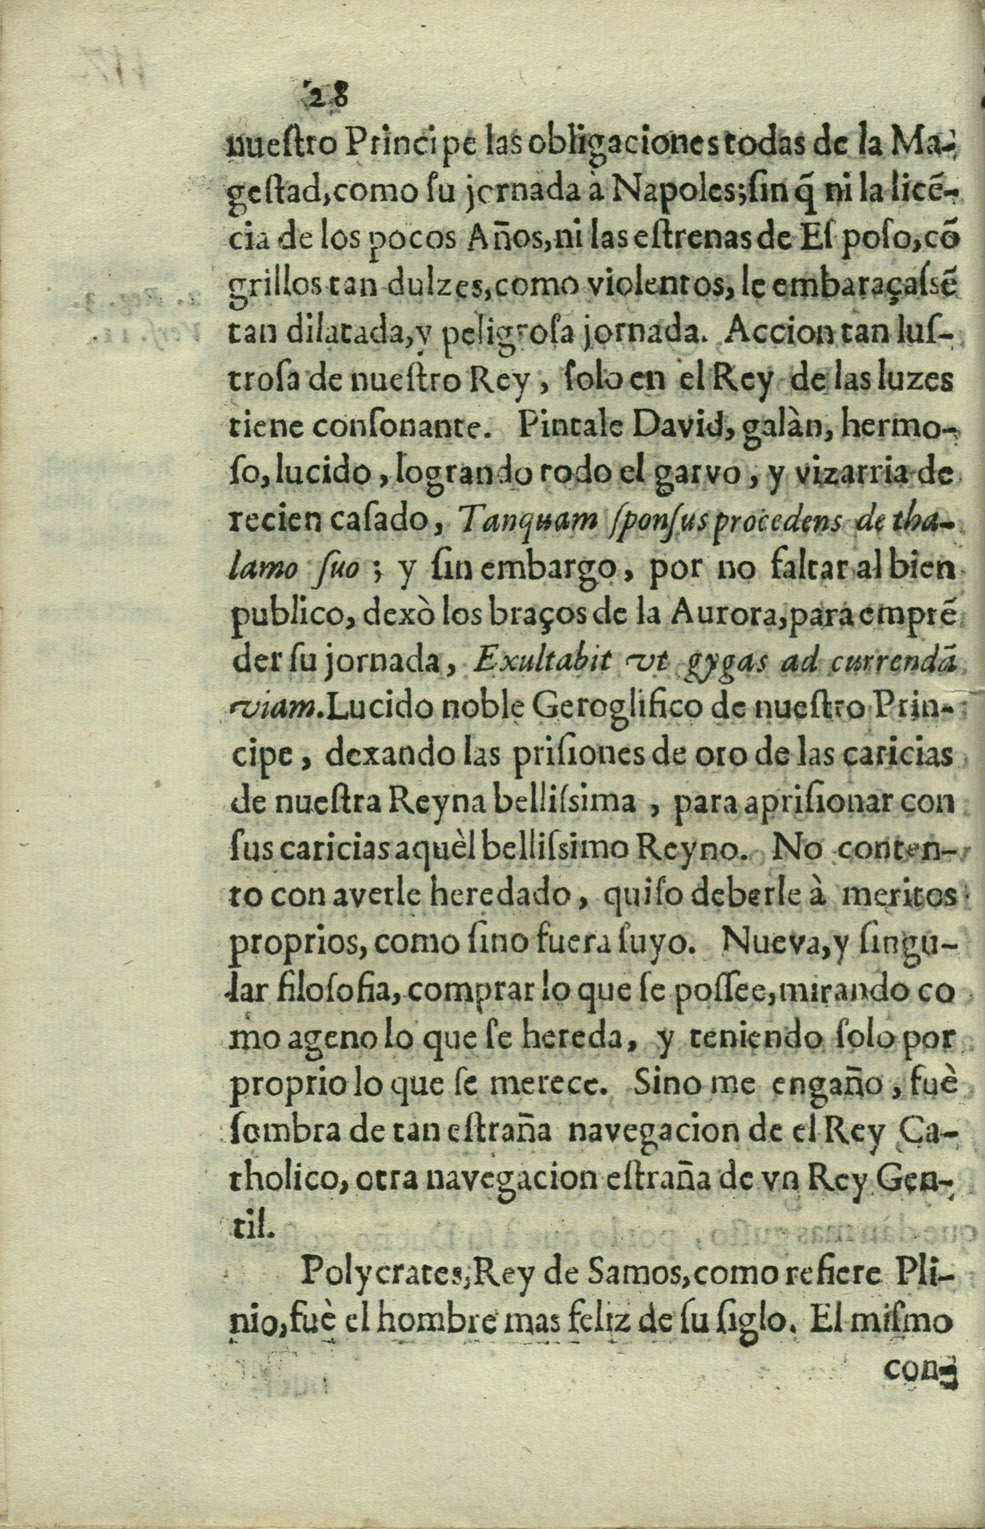 28
nueſtro Principe las obligaciones todas de la Ma-
geſtad, como ſu jornada à Napoles; ſin q̃ ni la licẽ-
cia de los pocos Años, ni las eſtrenas de Eſpoſo, cõ
grillos tan dulzes, como violentos, le embaraçaſsẽ
tan dilatada, y peligroſa jornada. Accion tan luſ-
troſa de nueſtro Rey, ſolo en el Rey de las luzes
tiene conſonante. Pintale David, galàn, hermo-
ſo, lucido, logrando todo el garvo, y vizarria de
recien caſado, Tanquam ſponſus procedens de tha-
lamo ſuo; y ſin embargo, por no faltar al bien
publico, dexò los braços de la Aurora, para emprẽ
der ſu jornada, Exultabit vt gygas ad currendã
viam. Lucido noble Geroglifico de nueſtro Prin-
cipe, dexando las priſiones de oro de las caricias
de nueſtra Reyna belliſsima, para apriſionar con
ſus caricias aquèl belliſsimo Reyno. No conten-
to con averle heredado, quiſo deberle à meritos
proprios, como ſino fuera ſuyo. Nueva, y ſingu-
lar filoſofia, comprar lo que ſe poſſee, mirando co
mo ageno lo que ſe hereda, y teniendo ſolo por
proprio lo que ſe merece. Sino me engaño, fuè
ſombra de tan eſtraña navegacion de el Rey Ca-
tholico, otra navegacion eſtraña de vn Rey Gen-
til.
Polycrates, Rey de Samos, como refiere Pli-
nio, fuè el hombre mas feliz de ſu ſiglo. El miſmo
con-